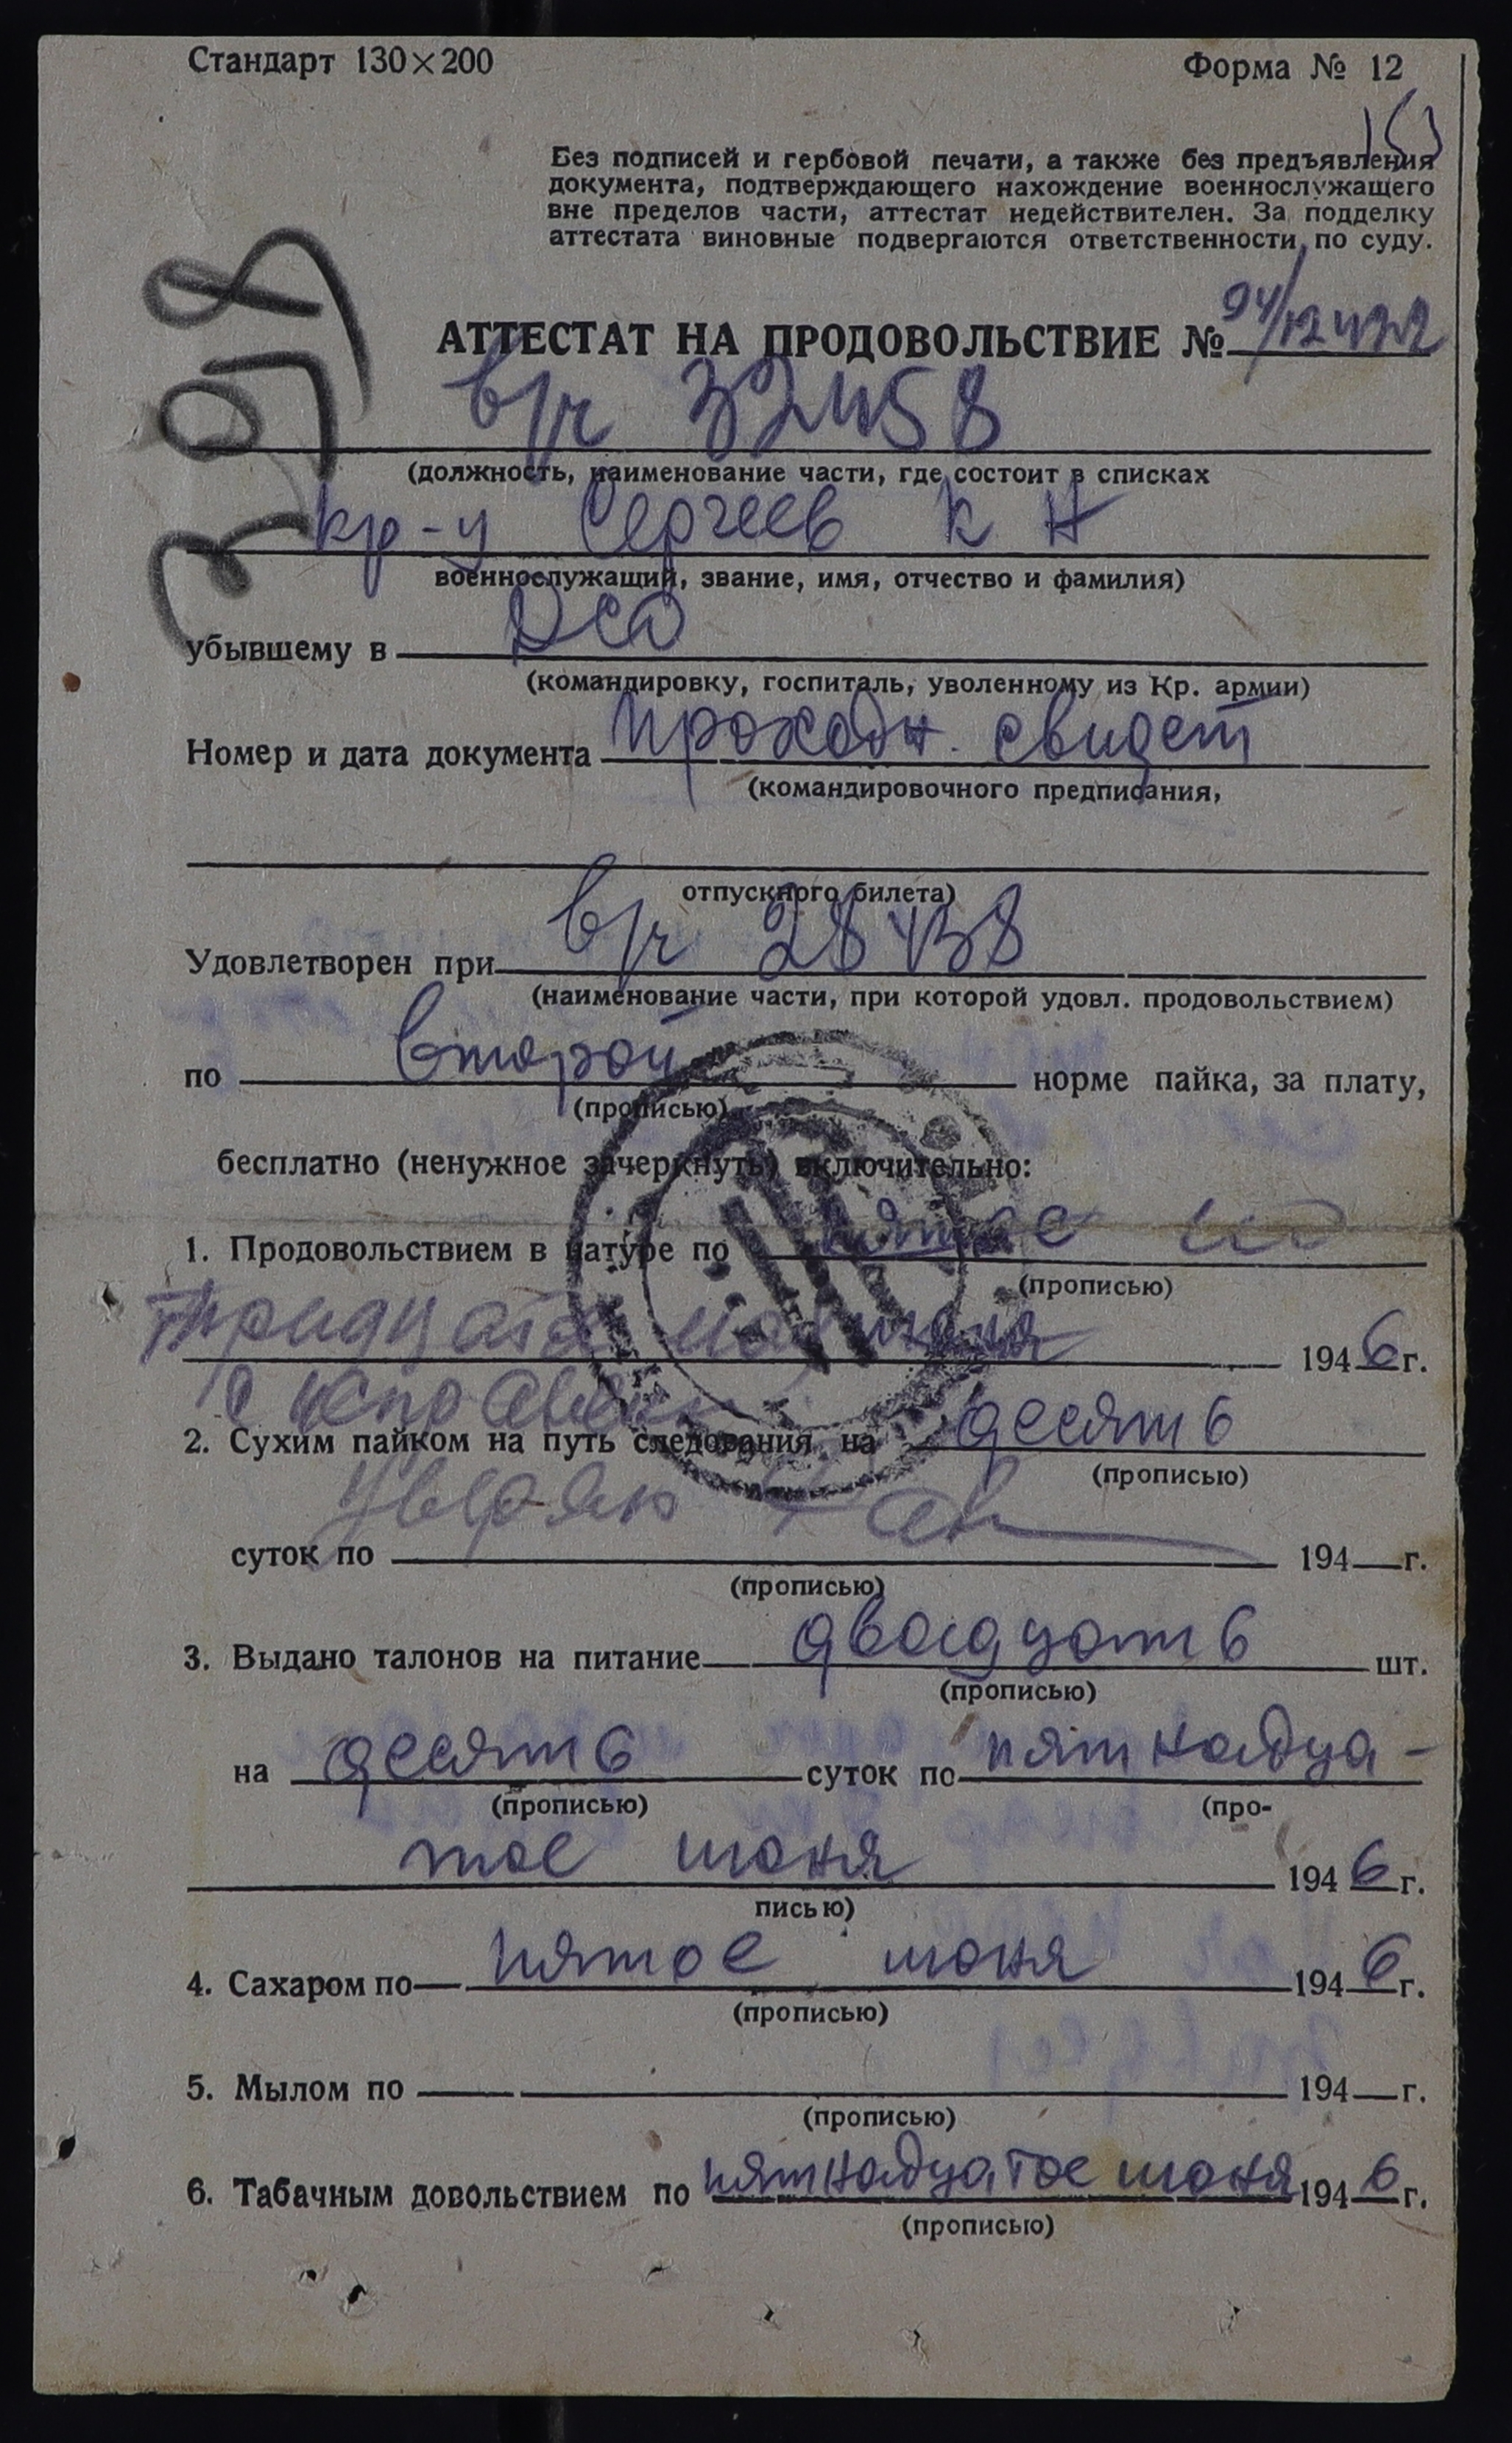 Стандарт 130×200 Форма № 12
153
Без подписей и гербовой печати, а также без предъявления
документа, подтверждающего нахождение военнослужащего
вне пределов части, аттестат недействителен. За подделку
аттестата виновные подвергаются ответственности по суду.
АТТЕСТАТ НА ПРОДОВОЛЬСТВИЕ № 94/12422
в/ч 32458
(должность, наименование части, где состоит в списках
кр-ц Сергеев К Н
военнослужащий, звание, имя, отчество и фамилия)
убывшему в
(командировку, госпиталь, уволенному из Кр. армии)
Номер и дата документа проходн. свидет
(командировочного предписания,
отпускного билета)
Удовлетворен при в/ч 28438
(наименование части, при которой удовл. продовольствием)
по второй норме пайка, за плату,
(прописью)
бесплатно (ненужное зачеркнуть) включительно:
1. Продовольствием в натуре по пятое
(прописью)
Тридцать 1946 г.
2. Сухим пайком на путь следования на десять
(прописью)
суток по 194 г.
(прописью)
3. Выдано талонов на питание двадцать шт.
(прописью)
на десять суток по пятнадца-
(прописью) (про-
тое июня 1946 г.
писью)
4. Сахаром по пятое июня 1946 г.
(прописью)
5. Мылом по 194 г.
(прописью)
6. Табачным довольствием по пятнадцатое июня 1946 г.
(прописью)